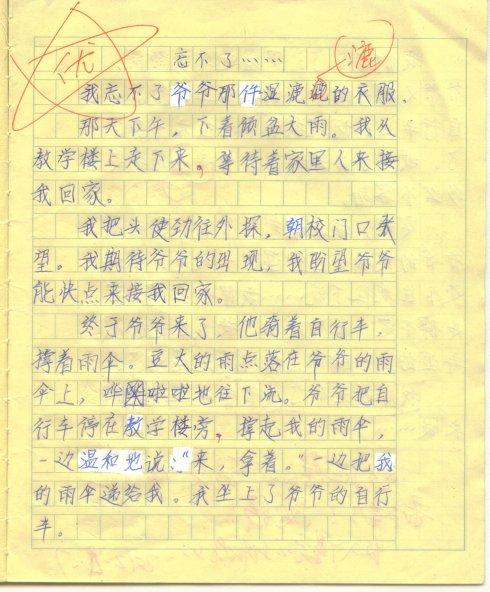 优
忘不了……
漉
我忘不了爷爷那件湿漉漉的衣服。
那天下午，下着倾盆大雨。我从
教学楼上走下来，等待着家里人来接
我回家。
我把头使劲往外探，朝校门口张
望。我期待爷爷的出现，我盼望爷爷
能快点来接我回家。
终于爷爷来了，他骑着自行车，
撑着雨伞。豆大的雨点落在爷爷的雨
伞上，哗啦啦地往下流。爷爷把自
行车停在教学楼旁，撑起我的雨伞，
一边温和地说：“来，拿着。”一边把我
的雨伞递给我。我坐上了爷爷的自行
车。